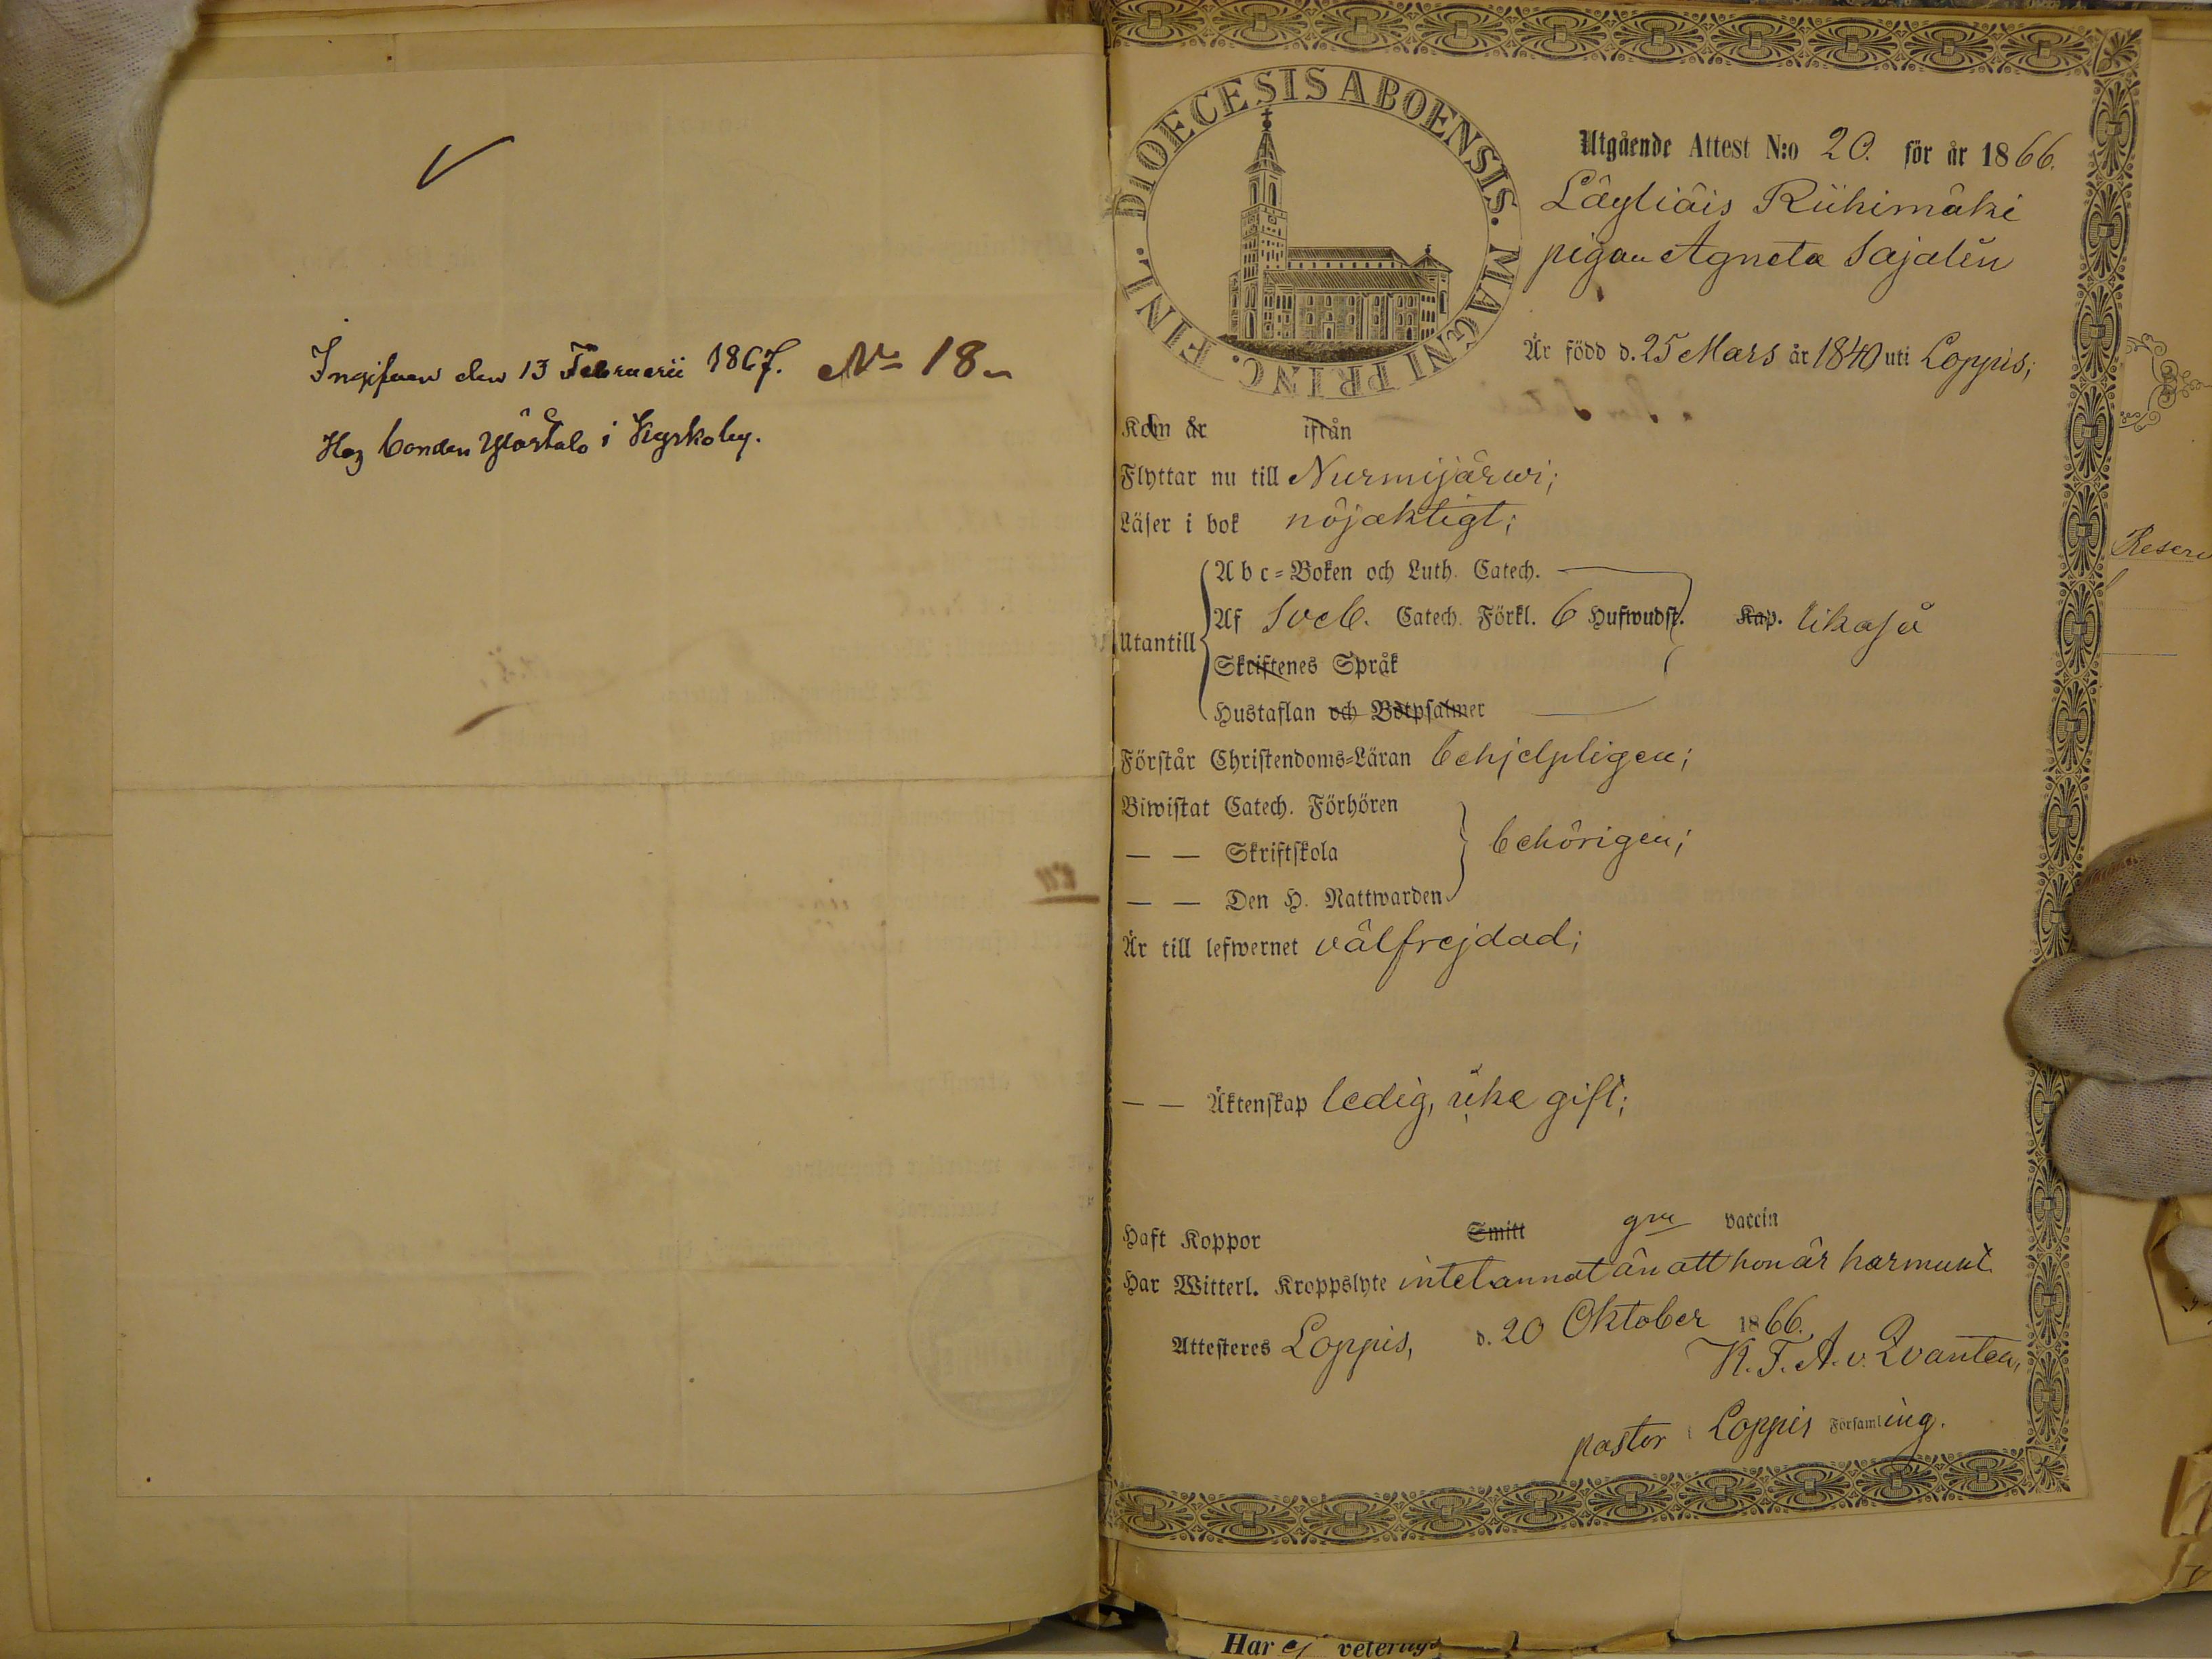 Ingifven den 13 Februarii 1867. No 18.
Hos bonden Ylöstalo i Kyrkoby.
DIOECESIS ABOENSIS. MAGNI PRINC. FINL.
Utgående Attest N:o 20. för år 1866.
Läyliäis Riihimäki
pigan Agneta Sajalén
Är född d. 25 Mars år 1840 uti Loppis;
Kom år ifrån
Flyttar nu till Nurmijärwi;
Läser i bok nöjaktigt;
Utantill
Abc=Boken och Luth. Catech.
Af Sveb. Catech. Förkl. 6 Hufwudst. Kap. likaså
Skriftenes Språk
Hustaflan och Botpsalmer
Förstår Christendoms=Läran behjelpligen;
Biwistat Catech. Förhören
— — Skriftskola behörigen;
— — Den H. Nattwarden
Är till lefwernet välfrejdad;
— — Äktenskap ledig, icke gift;
Haft Koppor Smitt gm vaccin
Har Witterl. Kroppslyte intet annat än att hon är harmunt
Attesteres Loppis, d. 20 Oktober 1866.
K. F. A. v. Qvanten,
pastor i Loppis Församling.
Har ej